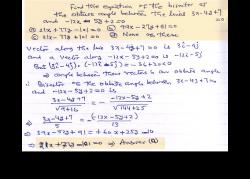 Find the equation of the bisector of
the obtuse angle between the lines 3x-4y+7
=0
and -12x-5y+2=0
21x+77y-101=0
99x-27y+81=0
21x+77y+101=0
None of these
Vector along the line 3x-4y+7=0 is
and a vector along -12x-5y+2=0 is -12i-5j
But (3i-4j).(-12i-5j)=-36+20<0
⇒ angle between these vectors is an obtuse angle
∴ Bisector of the obtuse angle between 3x-4y+7=0
and -12x-5y+2=0 is
3x-4y+7 / √9+16 = - -12x-5y+2 / √144+25
⇒ 3x-4y+7 / 5 = - (-12x-5y+2) / 13
⇒ 39x-52y+91=+60x+25y-10
⇒ 21x+77y-101=0 ⇒ Answer